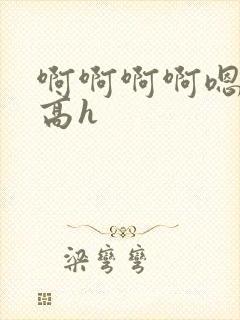 啊啊啊啊嗯
高h
梁弯弯